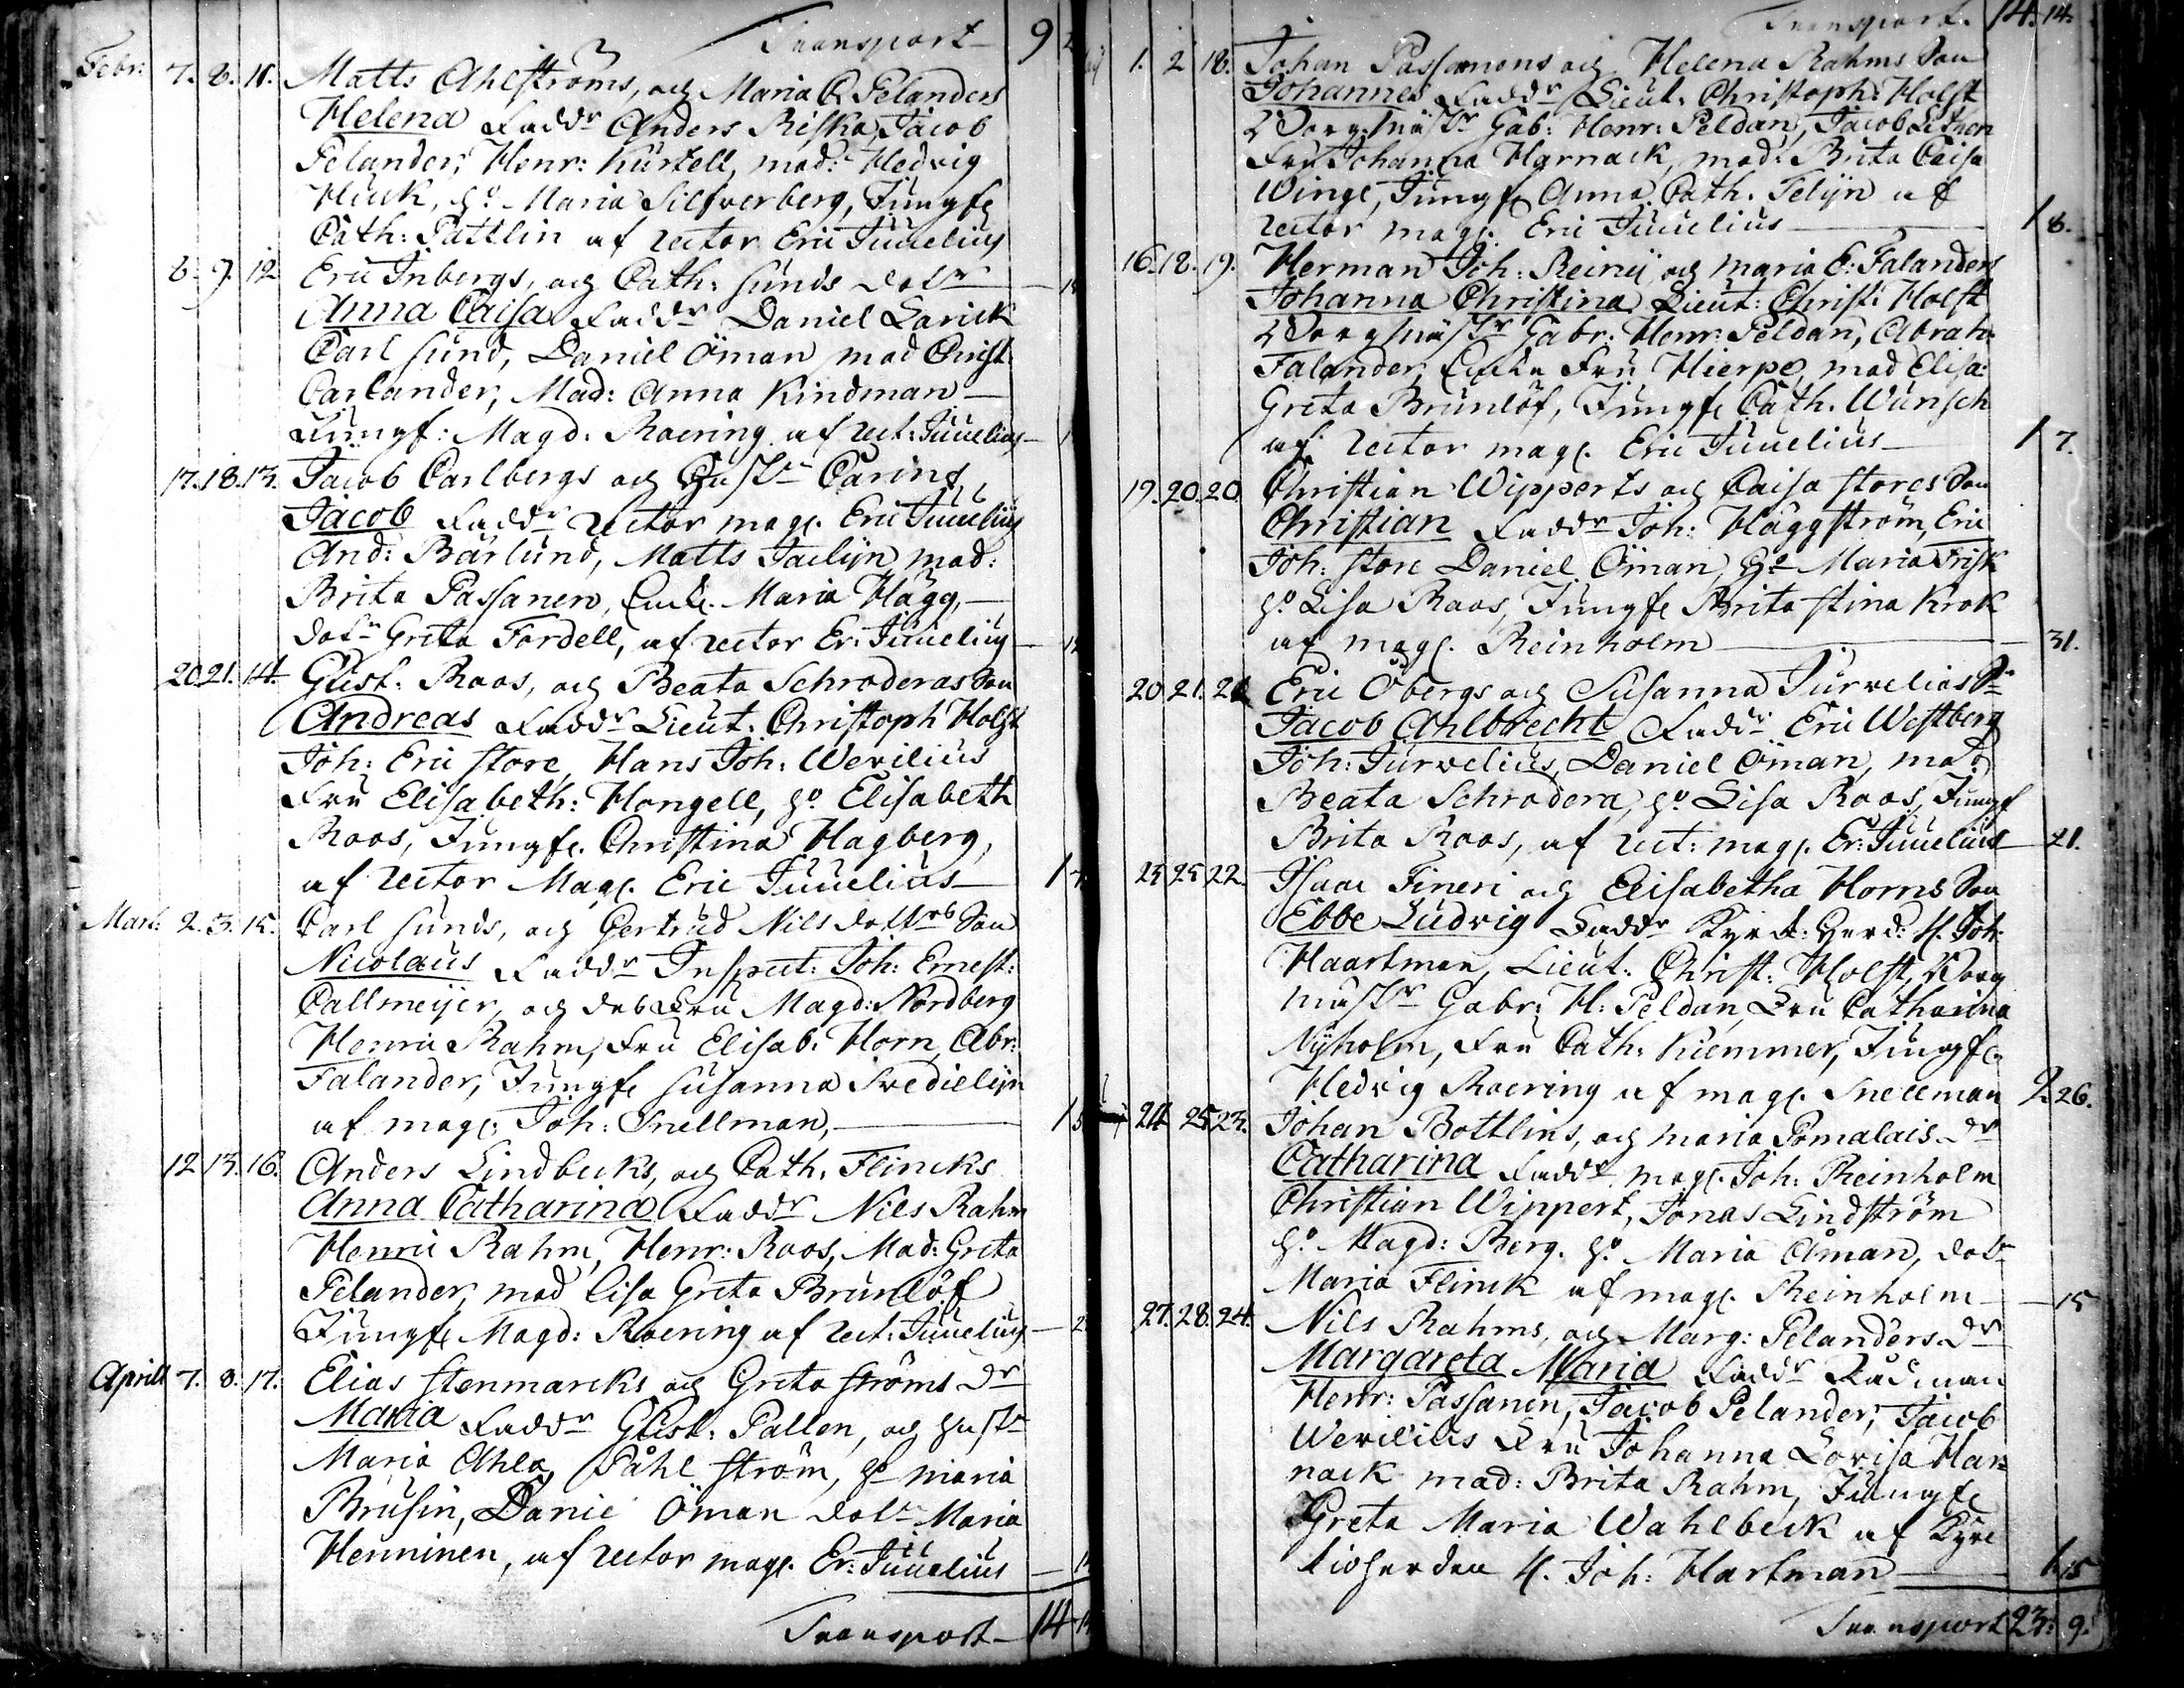 Transport 9
Febr. 7. 8. 11. Matts Ahlströms, och Maria C. Pelanders
Helena Faddr Anders Riska, Jacob
Pelander, Henr: Kurtell, mad: Hedvig
Huck, H:o Maria Silfverberg, Jungfr
Cath: Pattlin af rector Eric Juuelius
8. 9. 12 Eric Inbergs, och Cath: Sunds dotr
Anna Caisa Faddr Daniel Larick
Carl Sund, Daniel Öman mad Christ
Carlander, Mad: Anna Kindman
Jungf: Magd: Roering af rect: Juuelius
17. 18. 13. Jacob Carlbergs och Hustr Carins
Jacob Faddr rector mag. Eric Juuelius
And: Bärlund, Matts Jaelijn mad:
Brita Passanen, Enck. Maria Hägg,
dotr Greta Fordell, af rector Er: Juuelius
20 21. 14. Gust: Roos, och Beata Schroderas Son
Andreas Faddr Lieut: Christoph Holst
Joh: Eric Store, Hans Joh: Werilius
Fru Elisabeth: Hongell, h:o Elisabeth
Roos, Jungfr. Christina Hagberg,
af rector Mag. Eric Juuelius 1
Mart: 2. 3. 15. Carl Sunds, och Gertrud Nils dottrs Son
Nicolaus Faddr Inspect: Joh: Ernest:
Callmeijer, och des Fru Magd: Nordberg
Henric Rahm, Fru Elisab. Horn, Abr:
Falander, Jungfr Susanna Svedielijn
af mag. Joh: Snellman, 1
12 13. 16. Anders Lindbecks, och Cath: Flincks
Anna Catharina Faddr Nils Rahm
Henric Rahm, Henr: Roos, Mad: Greta
Pelander, mad Lisa Greta Brunlöf
Jungfr Magd: Roering af rect: Juuelius
Aprill 7. 8. 17. Elias Stenmarcks och Greta Ströms dr
Maria Faddr Gust: Pallen, och hustr
Maria Ahla, Påhl Ström, h:o Maria
Brusin, Danie Öman dotr Maria
Henninen, af rector mag. Er: Juuelius
Transport 14
Transport. 14. 14.
1. 2 18. Johan Passanens och Helena Rahms Son
Johannes Faddr Lieut: Christoph: Holst
Borgmästr Gab: Henr: Peldan, Jacob Lithen
Fru Johanna Harnack, mad: Brita Caisa
Winge, Jungfr Anna Cath. Telijn af
rector mag. Eric Juuelius 1 8.
16. 18. 19. Herman Joh: Reinij och Maria E: Falanders
Johanna Christina Lieut: Christ: Holst
Borgmästr Gabr: Henr: Peldan, Abrah:
Falander, Encke Fru Hierpe, mad Elisa:
Greta Brunlöf, Jungfr Cath. Wunsch
af rector mag. Eric Juuelius 1 7.
19. 20. 20 Christian Wipperts och Caisa Stores Son
Christian Faddr Joh: Häggström, Eric
Joh: Store Daniel Öman, H:o Maria Frisk
h:o Lisa Roos, Jungfr Brita Stina Krok
af mag. Reinholm 31.
20 21. 21 Eric Öbergs och Susanna Jurvelias Sn
Jacob Ahlbrecht Faddr Eric Westberg
Joh: Jurvelius, Daniel Öman, mad
Beata Schrodera, h:o Lisa Roos, Jungf
Brita Roos, af rect: mag. Er: Juuelius 21.
25 25 22. Isaac Fineri och Elisabetha Horns Son
Ebbe Ludvig Faddr Kyrk: Herd: H. Joh:
Haartman, Lieut: Christ: Holst, Borg
mästr Gabr: H: Peldan, Fru Catharina
Nyholm, Fru Cath: Kiemmer, Jungfr
Hedvig Roering af mag. Snellman 2 26.
24 25 23. Johan Bottlins, och Maria Pomalais dr
Catharina Faddr mag. Joh: Reinholm
Christian Wippert, Jonas Lindström
h:o Magd: Berg. h:o Maria Åman, dotr
Maria Flinck af mag. Reinholm 15
27. 28. 24. Nils Rahms, och Marg: Pelanders dr
Margareta Maria Faddr Rådman
Henr: Passanen, Jacob Pelander, Jacob
Werilius Fru Johanna Lovisa Har=
nack mad: Brita Rahm, Jungfr
Greta Maria Wahlbeck af Kyrc
kioherden H. Joh: Hartman 1. 15
Transport 23: 9.